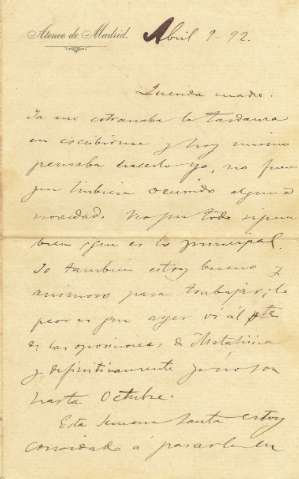 Ateneo de Madrid. Abril 9-92.
Querida madre:
Ya me extrañaba la tardanza
en escribirme y hoy mismo
pensaba hacerlo yo, no fuera
que hubiera ocurrido alguna
novedad. Veo que todo sigue
bien, que es lo principal.
Yo tambien estoy bueno y
animoso para trabajar; lo
peor es que ayer vi al pte
de las oposiciones de Metafísica
y definitivamente ya no son
hasta Octubre.
Esta Semana Santa estoy
convidado á pasarla en